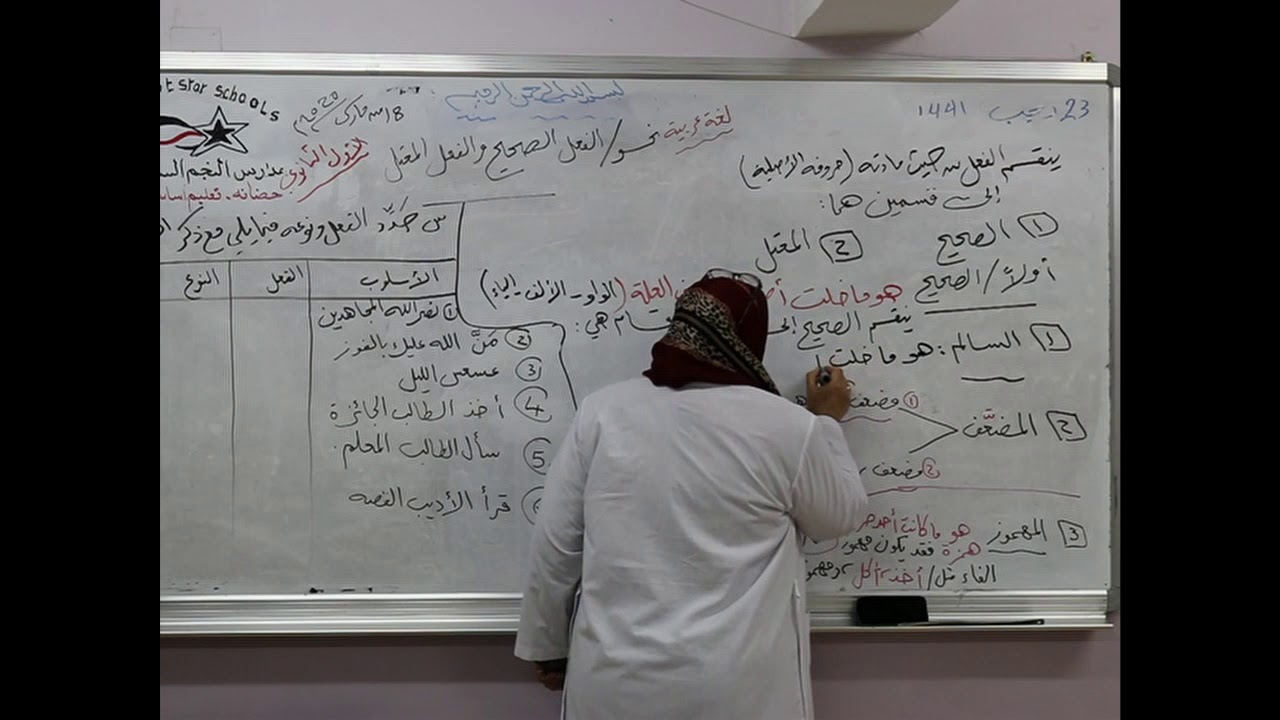 بسم الله الرحمن الرحيم
23 رجب 1441
18 من مارس 2020م
t star schools
مدارس النجم
حضانة - تعليم أساس
لغة عربية نحو / الفعل الصحيح والفعل المعتل
ينقسم الفعل من حيث مادته (حروفه الأصلية)
إلى قسمين هما:
1 الصحيح 2 المعتل
أولاً / الصحيح هو ما خلت العلة (الواو - الألف - الياء)
ينقسم الصحيح إلى هي:
1 السالم: هو ما خلت
2 المضعّف
1 مضعف
2 مضعف
3 المهموز هو ما كانت أحد
همزة فقد يكون مهموز
الفاء مثل / أخذ، أكل، ومهمو
س حدّد الفعل ونوعه فيما يلي مع ذكر
الأسلوب الفعل النوع
1 نصر الله المجاهدين
2 مَنَّ الله عليك بالفوز
3 عسعس الليل
4 أخذ الطالب الجائزة
5 سأل الطالب المعلم.
قرأ الأديب القصه